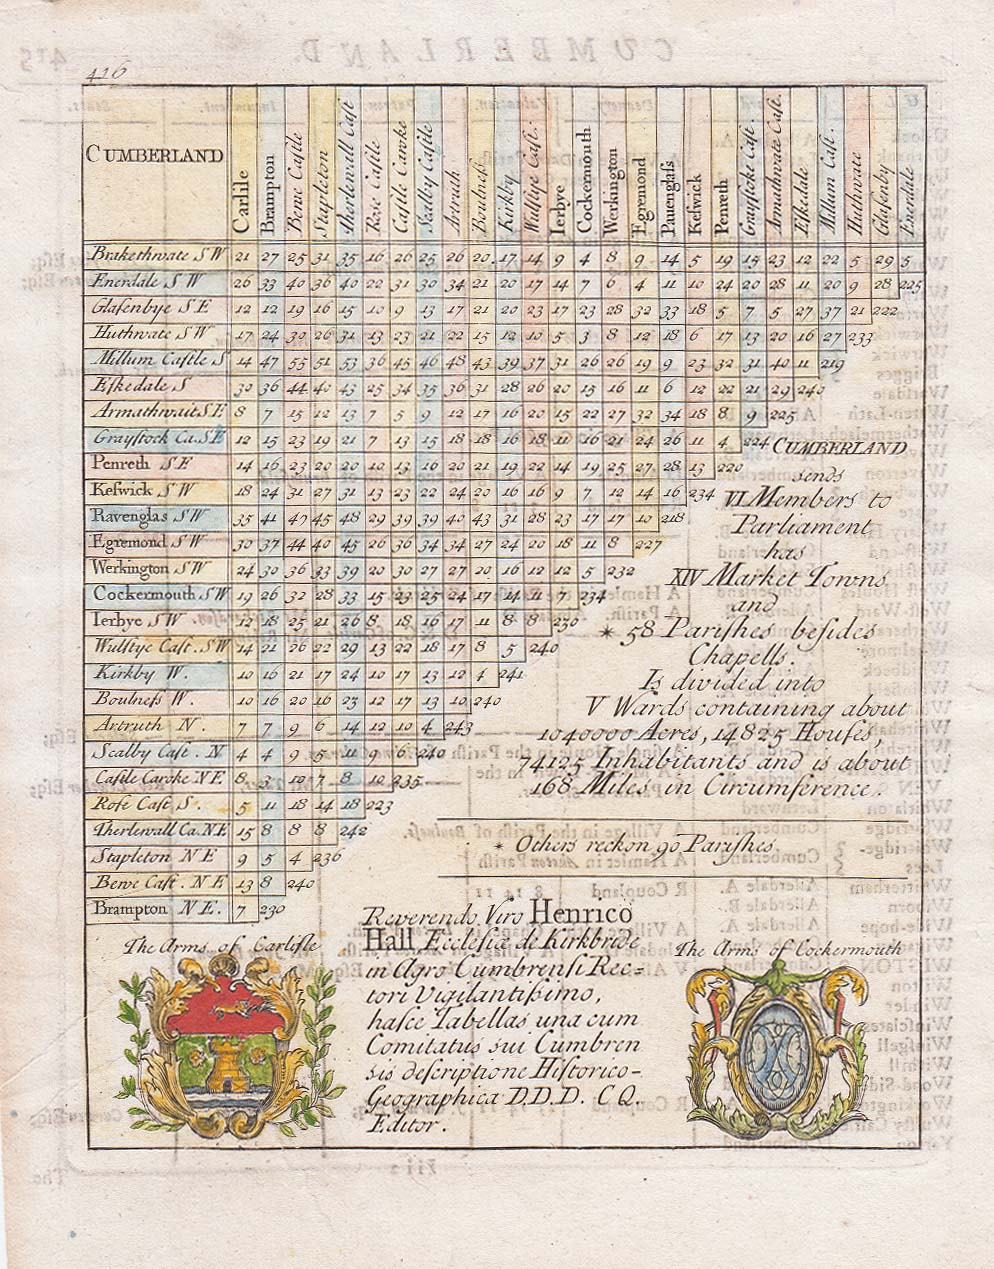 416
CUMBERLAND
Carlile
Brampton
Bewe Caſtle
Stapleton
Therlewall Caſt
Roſe Caſtle
Caſtle Carvke
Scalby Caſtle
Artruth
Boulneſs
Kirkby
Wulſtye Caſt.
Ierbye
Cockermouth
Werkington
Egremond
Pauenglaſs
Keſwick
Penreth
Grayſtoke Caſt.
Armathwate Caſt.
Eſkedale
Millum Caſt.
Huthwate
Glaſenby
Enerdale
Brakethwate SW 21 27 25 31 35 16 26 25 26 20 17 14 9 4 8 9 14 5 19 15 23 12 22 5 29 5
Enerdale SW 26 33 40 36 40 22 31 30 34 21 20 17 14 7 6 4 11 10 24 20 28 11 20 9 28 225
Glaſenbye SE 12 12 19 16 15 10 9 13 17 21 20 23 17 23 28 32 33 18 5 7 5 27 37 21 222
Huthwate SW 17 24 30 26 31 13 23 21 22 15 12 10 5 3 8 12 18 6 17 13 20 16 27 233
Millum Caſtle S 14 47 55 51 53 36 45 46 48 43 39 37 31 26 26 19 9 23 32 31 40 11 219
Eſkedale S 30 36 44 40 43 25 34 35 36 31 28 26 20 15 16 11 6 12 22 21 29 240
Armathwait SE 8 7 15 12 13 7 5 9 12 17 16 20 15 22 27 32 34 18 8 9 225
Grayſtock Ca. SE 12 15 23 19 21 7 13 15 18 18 16 18 11 16 21 24 26 11 4 224
Penreth SE 14 16 23 20 20 10 13 16 20 21 19 22 14 19 25 27 28 13 220
Keſwick SW 18 24 31 27 31 13 23 22 24 20 16 16 9 7 12 14 16 234
Ravenglas SW 35 41 47 45 48 29 39 39 40 43 31 28 23 17 17 10 218
Egremond SW 30 37 44 40 45 26 36 34 34 27 24 20 18 11 8 227
Werkington SW 24 30 36 33 39 20 30 27 27 20 16 12 12 5 232
Cockermouth SW 19 26 32 28 33 15 23 25 24 17 14 11 7 234
Ierbye SW 12 18 25 21 26 8 18 16 17 11 8 8 230
Wulſtye Caſt. SW 14 21 26 22 29 13 22 18 17 8 5 240
Kirkby W. 10 16 21 17 24 10 17 13 12 4 241
Boulneſs W. 10 16 20 16 23 12 17 13 10 240
Artruth N. 7 7 9 6 14 12 10 4 243
Scalby Caſt. N 4 4 9 5 11 9 6 240
Caſtle Carvke NE 8 3 10 7 8 10 235
Roſe Caſt S. 5 11 18 14 18 223
Therlewall Ca. NE 15 8 8 8 242
Stapleton NE 9 5 4 236
Bewe Caſt. NE 13 8 240
Brampton NE. 7 230
CUMBERLAND
sends
VI Members to
Parliament
has
XIV Market Towns
and
* 58 Pariſhes beſides
Chapells.
Is divided into
V Wards containing about
1040000 Acres, 14825 Houſes,
74125 Inhabitants and is about
168 Miles in Circumference.
* Others reckon 90 Pariſhes.
Reverendo Viro Henrico
Hall Eccleſiæ de Kirkbride
in Agro Cumbrenſi Rec=
tori Vigilantiſsimo,
haſce Tabellas una cum
Comitatus sui Cumbren
sis deſcriptione Hiſtorico-
Geographica D.D.D. CQ.
Editor.
The Arms of Carliſle
The Arms of Cockermouth